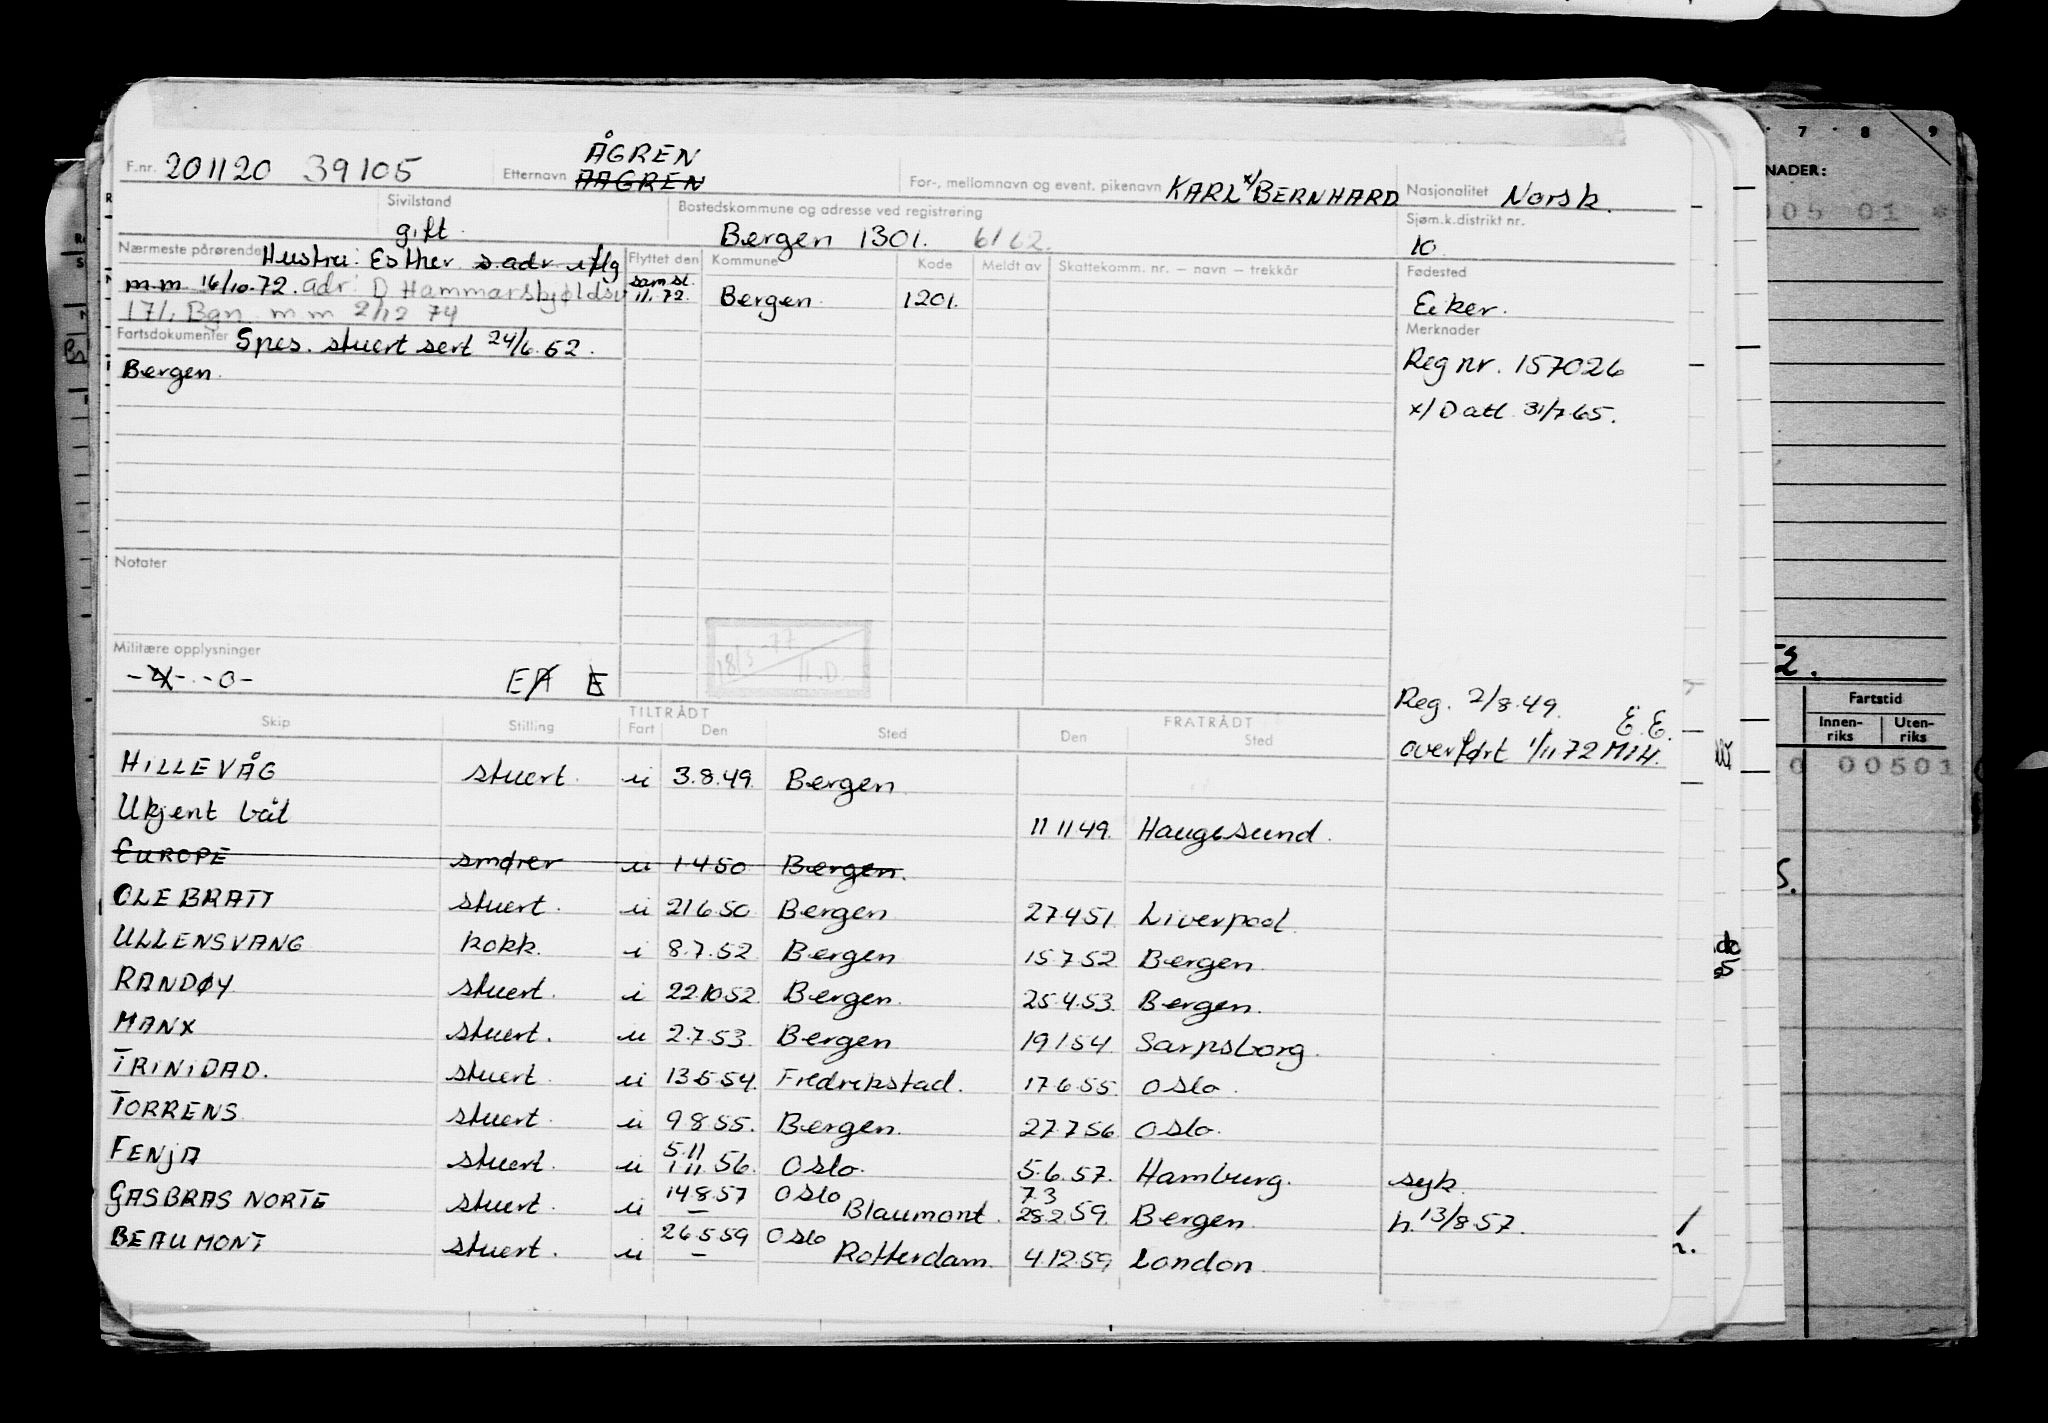 F.nr. 201120 39105
Etternavn ÅGREN
AAGREN
For-, mellomnavn og event. pikenavn KARL x/ BERNHARD
Nasjonalitet Norsk.
Sivilstand
gift.
Bostedskommune og adresse ved registrering
Bergen 1301. 6/62.
Sjøm.k.distrikt nr.
10
Nærmeste pårørende Hustru: Esther s.adr iflg
m m 16/10.72. adr: D Hammarskjøldsv
171, Bgn. m m 2/12 74
Flyttet den Kommune Kode Meldt av Skattekomm. nr. — navn — trekkår
saml.
1/1.72. Bergen. 1201.
Fødested
Eiker.
Fartsdokumenter Spes. stuert sert 24/6.52.
Bergen.
Merknader
Reg nr. 157026
x/ D att. 31/7.65.
Notater
18/3-77
H.D.
Militære opplysninger
-x-.-0- EA E
Reg. 2/8.49. E.E.
overført 1/11 72 MIH.
Skip Stilling TILTRÅDT Fart Den Sted FRATRÅDT Den Sted
HILLEVÅG stuert. u 3.8.49. Bergen
Ukjent båt 11 11 49. Haugesund.
EUROPE smører u 1.4 50 Bergen.
OLE BRATT stuert. u 21 6.50 Bergen 27.4 51. Liverpool.
ULLENSVANG kokk. i 8.7.52 Bergen 15 7 52 Bergen.
RANDØY stuert. i 22.10 52 Bergen. 25.4.53. Bergen.
MANX stuert. u 2.7.53. Bergen 19 1 54. Sarpsborg.
TRINIDAD. stuert. u 13.5.54. Fredrikstad. 17.6.55. Oslo.
TORRENS stuert. u 9.8.55. Bergen. 27.7 56. Oslo.
5.11
FENJA stuert. u 1 11 56. Oslo. 5.6.57. Hamburg. syk.
14.8.57 Oslo 7.3
GASBRAS NORTE stuert. u — Blaumont. 28.2 59. Bergen. h. 13/8.57.
26.5.59 Oslo
BEAUMONT stuert. u — Rotterdam. 4.12.59, London.
7 8 9
NADER:
005 01 *
52.
Fartstid
Innen-
riks
Uten-
riks
0 00501